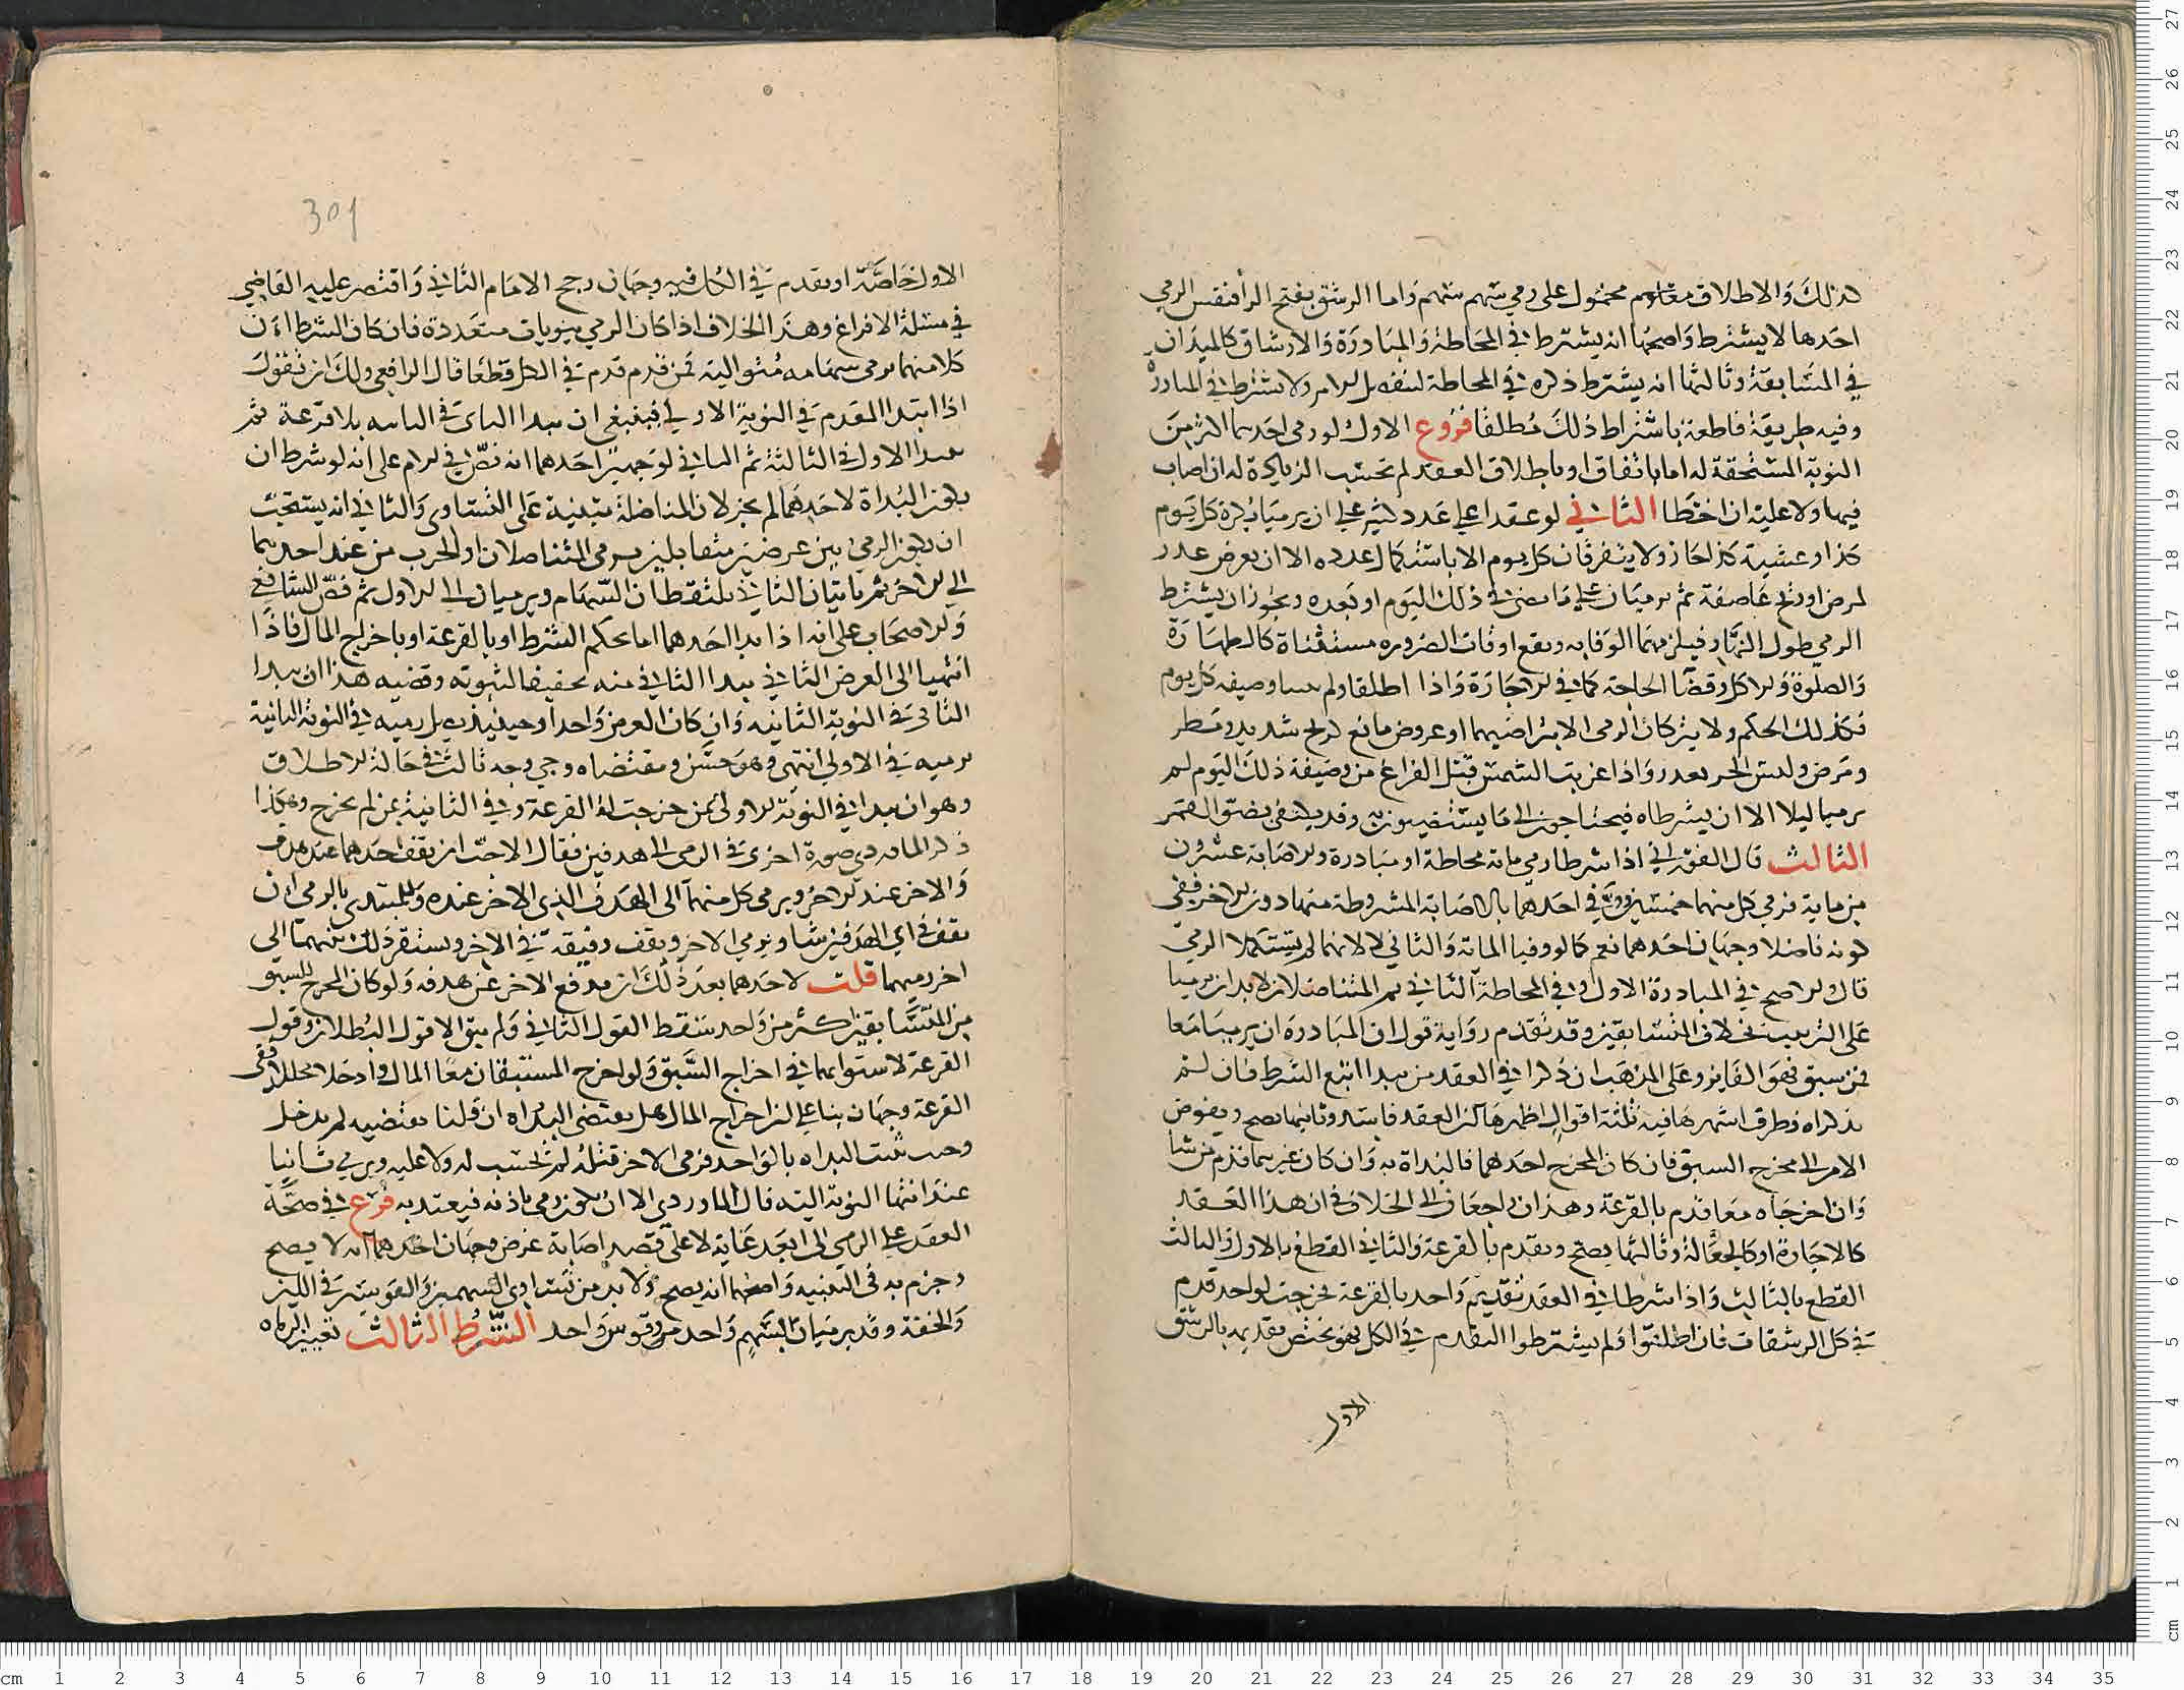 كذلك والاطلاق محمول على رمي سهم سهم واما الرشق بفتح الرا فنفس الرمي
احدها لا يشترط واصحها انه يشترط في المحاطة والمبادرة والارشاق كالميدان
في المسابقة وثالثها انه يشترط ذكره في المحاطة ولا يشترط في المبادرة
وفيه طريقة قاطعة باشتراط ذلك مطلقا فروع الاول لو رمى احدهما اكثر من
النوبة المستحقة له اما باتفاق او باطلاق العقد لم تحسب الزيادة له ان اصاب
فيها ولا عليه ان اخطا الثاني لو عقدا على عدد كثير على ان يرميا بكرة كل يوم
كذا وعشية كذا جاز ولا يتفرقان كل يوم الا باستكمال عدده الا ان يعرض عذر
لمرض او ريح عاصفة ثم يرميان على ما مضى في ذلك اليوم او بعده ويجوز ان يشترط
الرمي طول النهار فيلزمهما الوفا به ويقع اوقات الضرورة مستثناة كالطهارة
والصلوة والاكل وقضا الحاجة كما في الاجارة واذا اطلقا ولم وصيفه كل يوم
فكذلك الحكم ولا يتركان الرمي الا بتراضيهما او عروض مانع كريح شديد ومطر
ومرض وليس الحر بعذر واذا غربت الشمس قبل الفراغ من وضيفة ذلك اليوم لم
يرميا ليلا الا ان يشترطاه فيحتاجون الى ما يستضيون به وقد يكتفى بضو القمر
الثالث قال الفوراني اذا شرطا رمي ماية محاطة او مبادرة والاصابة عشرون
من ماية فرمى كل منهما خمسين فوقع في احدهما بالاصابة المشروطة منهما دون الاخر ففي
كونه فاضلا وجهان احدهما نعم كما لو وفيا الماية والثاني لا لانهما لم يستكملا الرمي
قال والاصح في المبادرة الاول وفي المحاطة الثاني ثم المتناضلان لا بد ان يرميا
على الترتيب بخلاف المتسابقين وقد تقدم رواية قول ان المبادرة ان يرميا معا
فمن سبق فهو الفايز وعلى المذهب ان ذكرا في العقد من يبدا اتبع الشرط فان لم
يذكراه وطرق اشهرها فيه ثلثة اقوال اظهرها ان العقد فاسد وثانيها يصح ويفوض
الامر الى مخرج السبق فان كان المخرج احدهما فالبداة به وان كان غيرهما قدم من شا
وان اخرجاه معا قدم بالقرعة وهذان راجعان الى الخلاف في ان هذا العقد
كالاجارة او كالجعالة وثالثها يصح ويقدم بالقرعة والثاني القطع بالاول والثالث
القطع بالثالث واذا شرطا في العقد تقديم واحد بالقرعة فخرجت لواحد قدم
في كل الرشقات فان اطلقوا ولم يشترطوا التقدم في الكل فهو يختص تقديمه بالرشق
الاول
301
الاول خاصة او يقدم في الكل فيه وجهان رجح الامام الثاني واقتصر عليه القاضي
في مسلة الافراغ وهذا الخلاف اذا كان الرمي بنوبات متعددة فان كان الشرط ان
كلا منهما يرمي سهامه متوالية فمن قدم قدم في الكل قطعا قال الرافعي ولك ان تقول
اذا ابتدا المقدم في النوبة الاولى فينبغي ان يبدا الثاني في الثانية بلا قرعة ثم
يبدا الاول في الثالثة ثم الثاني لوجهين احدهما انه نص في الام على انه لو شرط ان
يكون البداة لاحدهما لم يجز لان المناضلة مبنية على التساوي والثاني انه يستحب
ان يكون الرمي بين عرضين متقابلين يرمي المتناضلان او الحزب من عند احدهما
الى الاخر ثم ياتيان الثاني يلتقطان السهام ويرميان الى الاول ثم نص الشافعي
والاصحاب على انه اذا بدا احدهما اما بحكم الشرط او بالقرعة او باخراج المال فاذا
انتهيا الى العرض الثاني يبدا الثاني منه تحقيقا للتسوية وقضيه هذا ان يبدا
الثاني في النوبة الثانية وان كان العرض واحدا وحينيذ رميه في النوبة الثانية
برميه في الاولى انتهى وهو حسن ومقتضاه وجه ثالث في حالة الاطلاق
وهو ان يبدا في النوبة الاولى بمن خرجت له القرعة وفي الثانية بمن لم يخرج وهكذا
ذكر الماوردي صورة اخرى في الرمي الى هدفين فقال الاحب ان يقف احدهما عند هدف
والاخر عند الاخر ويرمي كل منهما الى الهدف الذي الاخر عنده وللمبتدي بالرمي ان
يقف في اي الهدفين شا ويرمي الى الاخر ويقف رفيقه في الاخر ويستقر ذلك بينهما الى
اخر رميهما قلت لاحدهما بعد ذلك ان يدفع الاخر عن هدفه ولو كان المخرج للسبق
من المتسابقين اكثر من واحد سقط القول الثاني ولم يبق الا قول البطلان وقول
القرعة لاستوائهما في اخراج السبق ولو اخرج المستبقان معا المال وادخلا محللا ففي
القرعة وجهان بنا على ان اخراج المال هل يقتضي البداه ان قلنا يقتضيه لم يدخل
وحيث ثبتت البداه بالواحد فرمى الاخر قبله لم تحسب له ولا عليه ويرمي ثانيا
عند انتها النوبة اليه قال الماوردي الا ان يكون رمى باذنه فيعتد به فرع في صحة
العقد على الرمي الى ابعد غاية لا على قصد اصابة عرض وجهان احدهما انه لا يصح
وجزم به في التنبيه واصحهما انه يصح ولا بد من تساوي السهمين والقوسين في اللين
والخفة وقد يرميان بسهم واحد وقوس واحد الشرط الثالث تعيين الرماه